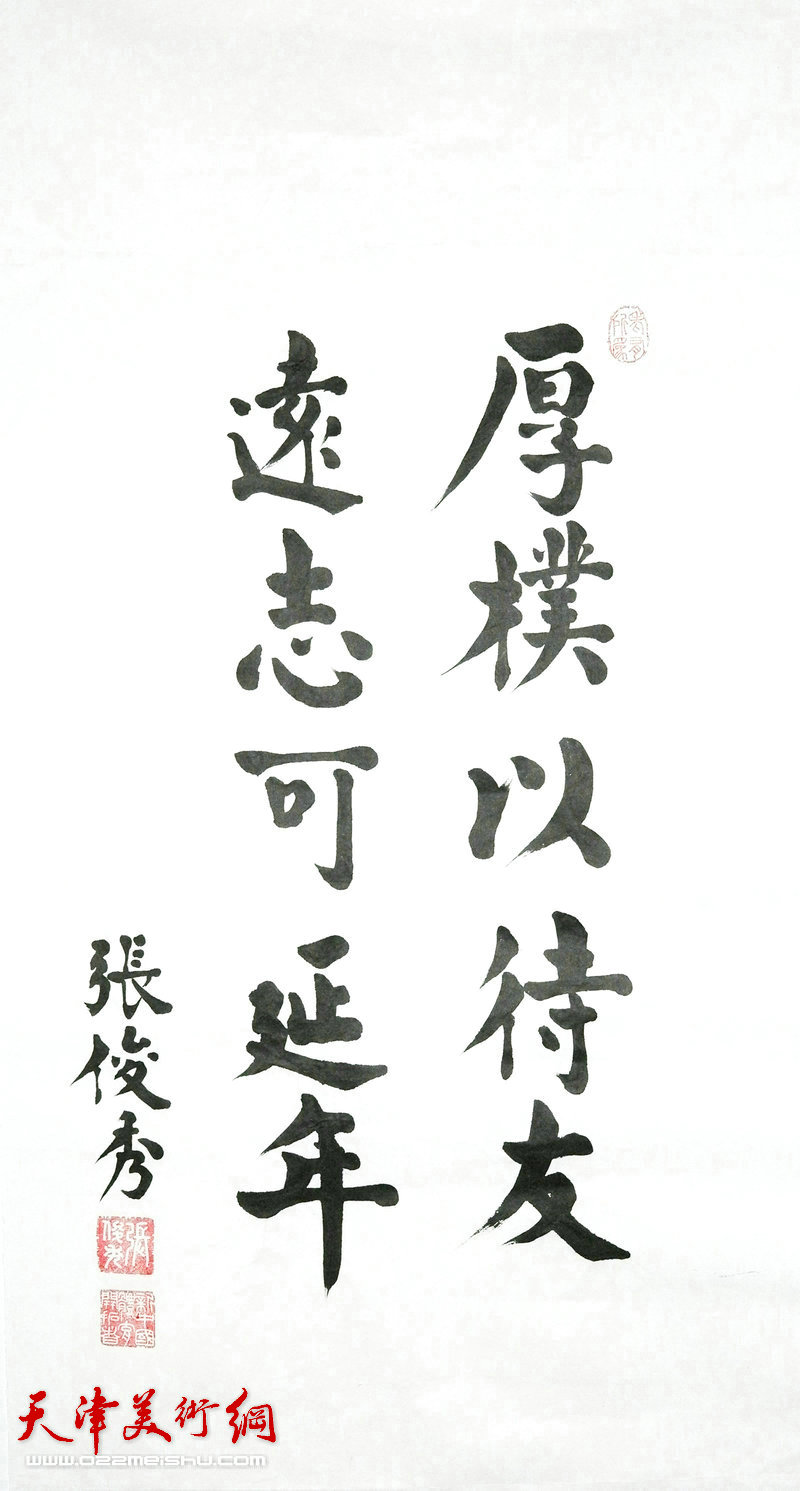 厚樸以待友
遠志可延年
張俊秀
天津美術網
www.022meishu.com